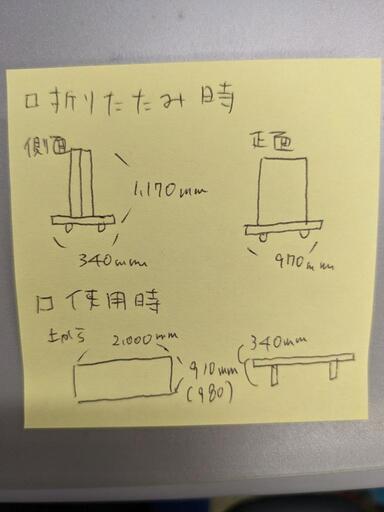 □折りたたみ時
側面
正面
1,170mm
340mm
970mm
□使用時
上から
2,000mm
910mm
(980)
340mm